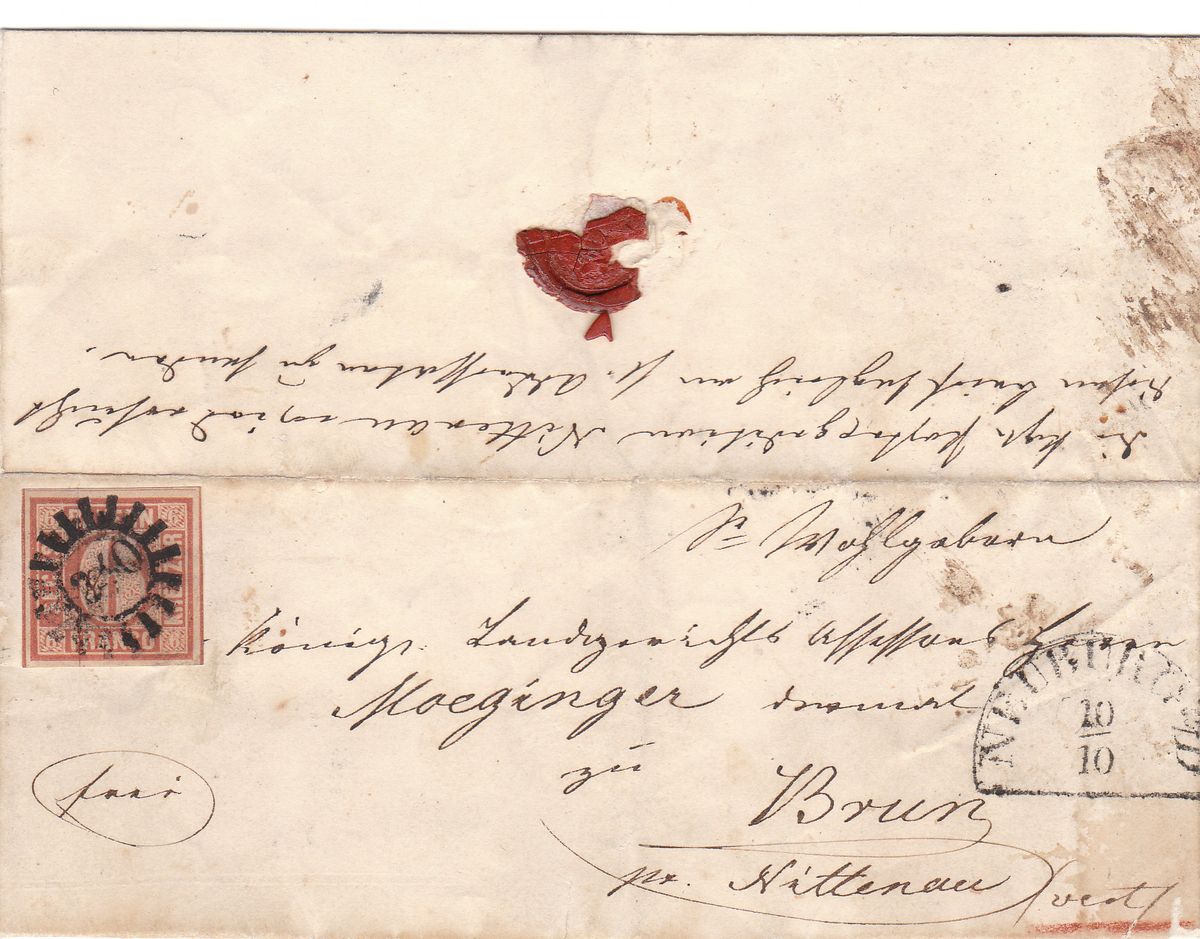 Die kgl. Postexpedition Nittenau wird ersucht
diesen Brief sogleich an H. Adressaten zu senden.
BAYERN
240
FRANCO
Sr Wohlgeborn
Königl. Landgerichts Assessors Herrn
Moeginger dermal
zu
Brun
pr. Nittenau (vert/
frei
NEUBURG
10
10